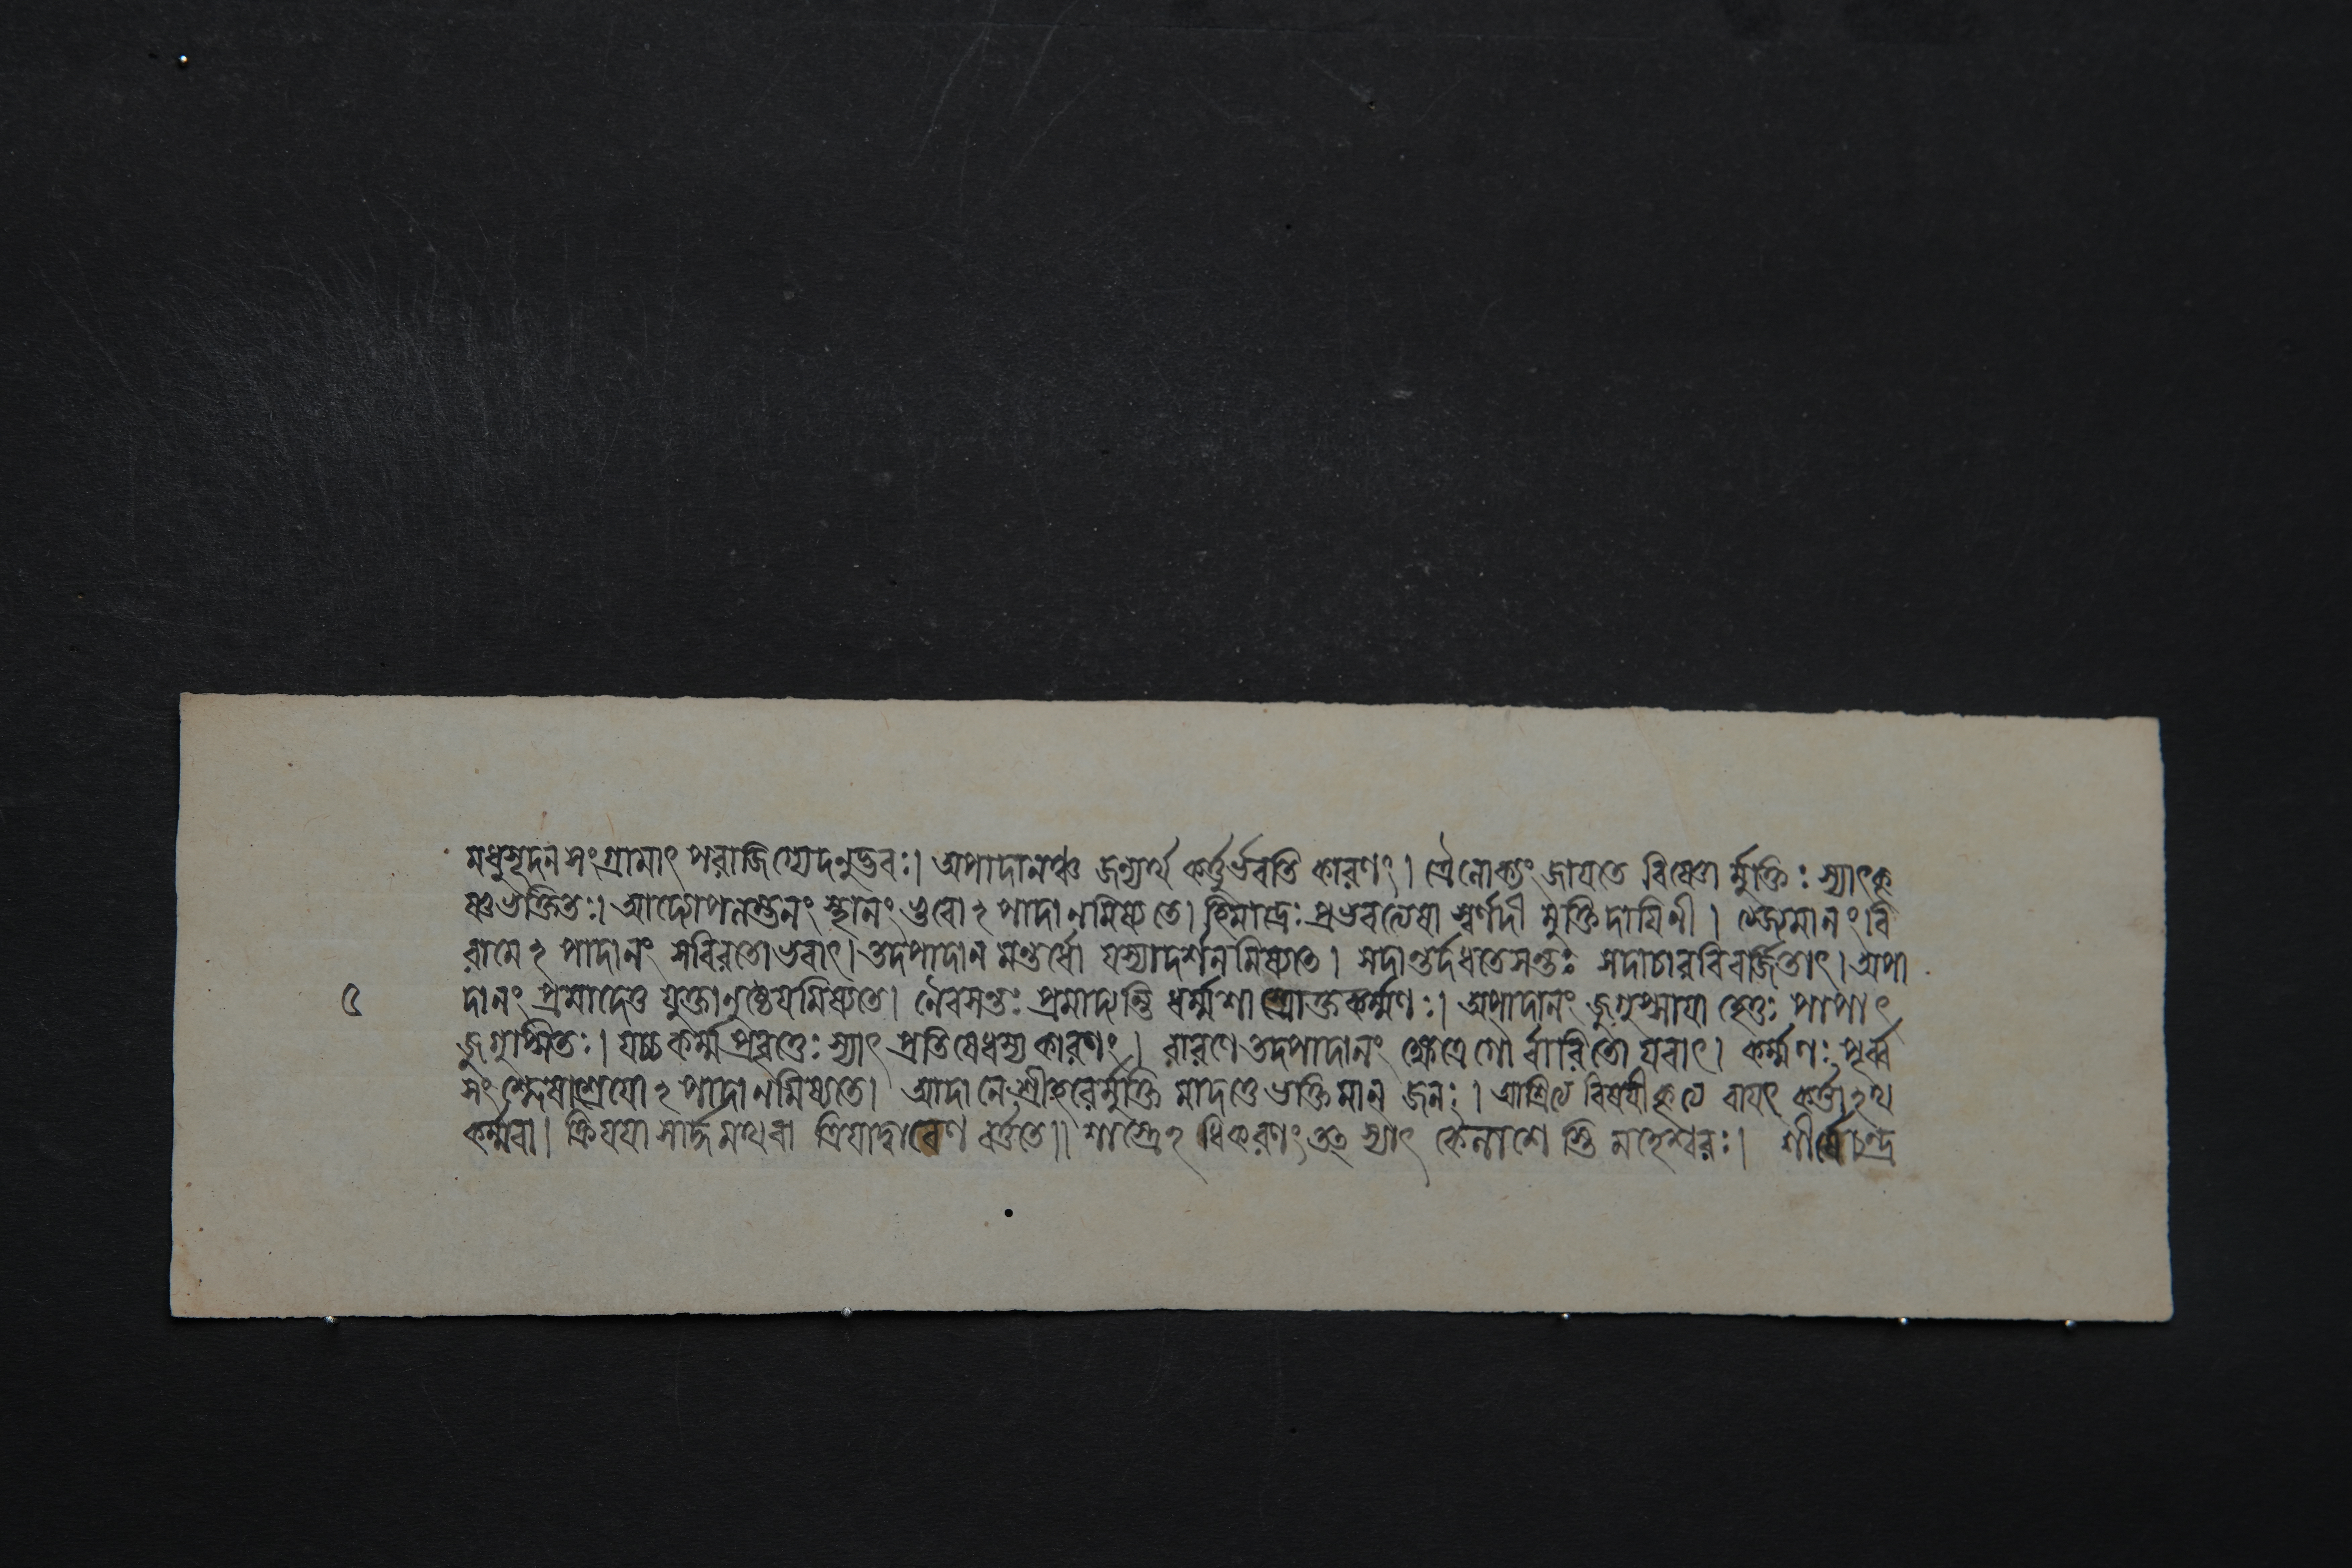 মধুসূদনসংগ্রামাৎ পরাজিগ্যেদনুদ্ভবঃ। অপাদানঞ্চ জন্যর্থ কর্ত্তুর্ভবতি কারণং। ত্রৈলোক্যং জায়তে বিষ্ণোর্মুক্তিঃ স্যাৎকৃ
ষ্ণভক্তিতঃ। আদ্যোপলম্ভনং স্থানং ভুবোঽপাদানমিষ্যতে। হিমাদ্রেঃ প্রভবত্যেষা স্বর্ণদী মুক্তিদায়িনী। ত্যজ্যমানং বি
রামেঽপাদানং সবিরতোভবাৎ। তদপাদানমন্তর্ধৌ যস্যাদর্শনমিষ্যতে। সদান্তর্দধতেসন্তঃ সদাচারবিবর্জ্জিতাৎ। অপা
৫ দানং প্রমাদেতু যুক্তানুষ্ঠেয়মিষ্যতে। নৈবসন্তঃ প্রমাদ্যন্তি ধর্ম্মশাস্ত্রোক্তকর্ম্মণঃ। অপাদানং জুগুপ্সায়া হেতুঃ পাপাৎ
জুগুপ্সিতঃ। যচ্চকর্ম্মপ্রবৃত্তেঃ স্যাৎ প্রতিষেধস্য কারণং। বারণে তদপাদানং ক্ষেত্রে গৌর্বারিতো যবাৎ। কর্ম্মণঃ পূর্ব্ব
সংশ্লেষাশ্রয়োঽপাদানমিষ্যতে। আদানে শ্রীহরের্মুক্তিমাদত্তে ভক্তিমান জনঃ। আশ্রিত্য বিষয়ীকৃত্য বাযৎ কর্ত্তাঽথ
কর্ম্মবা। ক্রিয়য়া সার্দ্ধমথবা ক্রিয়াদ্বারেণ বর্ত্ততে॥ শাস্ত্রেঽধিকরণং তৎ স্যাৎ কৈলাশেস্তি মহেশ্বরঃ। শীর্ষেচন্দ্র